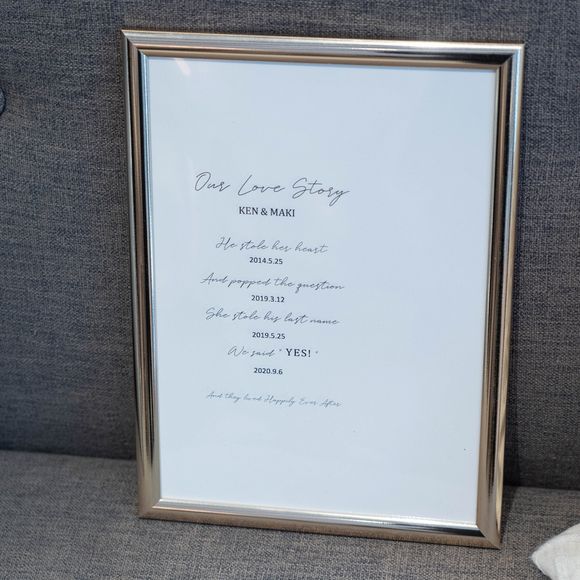 Our Love Story
KEN & MAKI
He stole her heart
2014.5.25
And popped the question
2019.3.12
She stole his last name
2019.5.25
We said " YES! "
2020.9.6
And they lived Happily Ever After